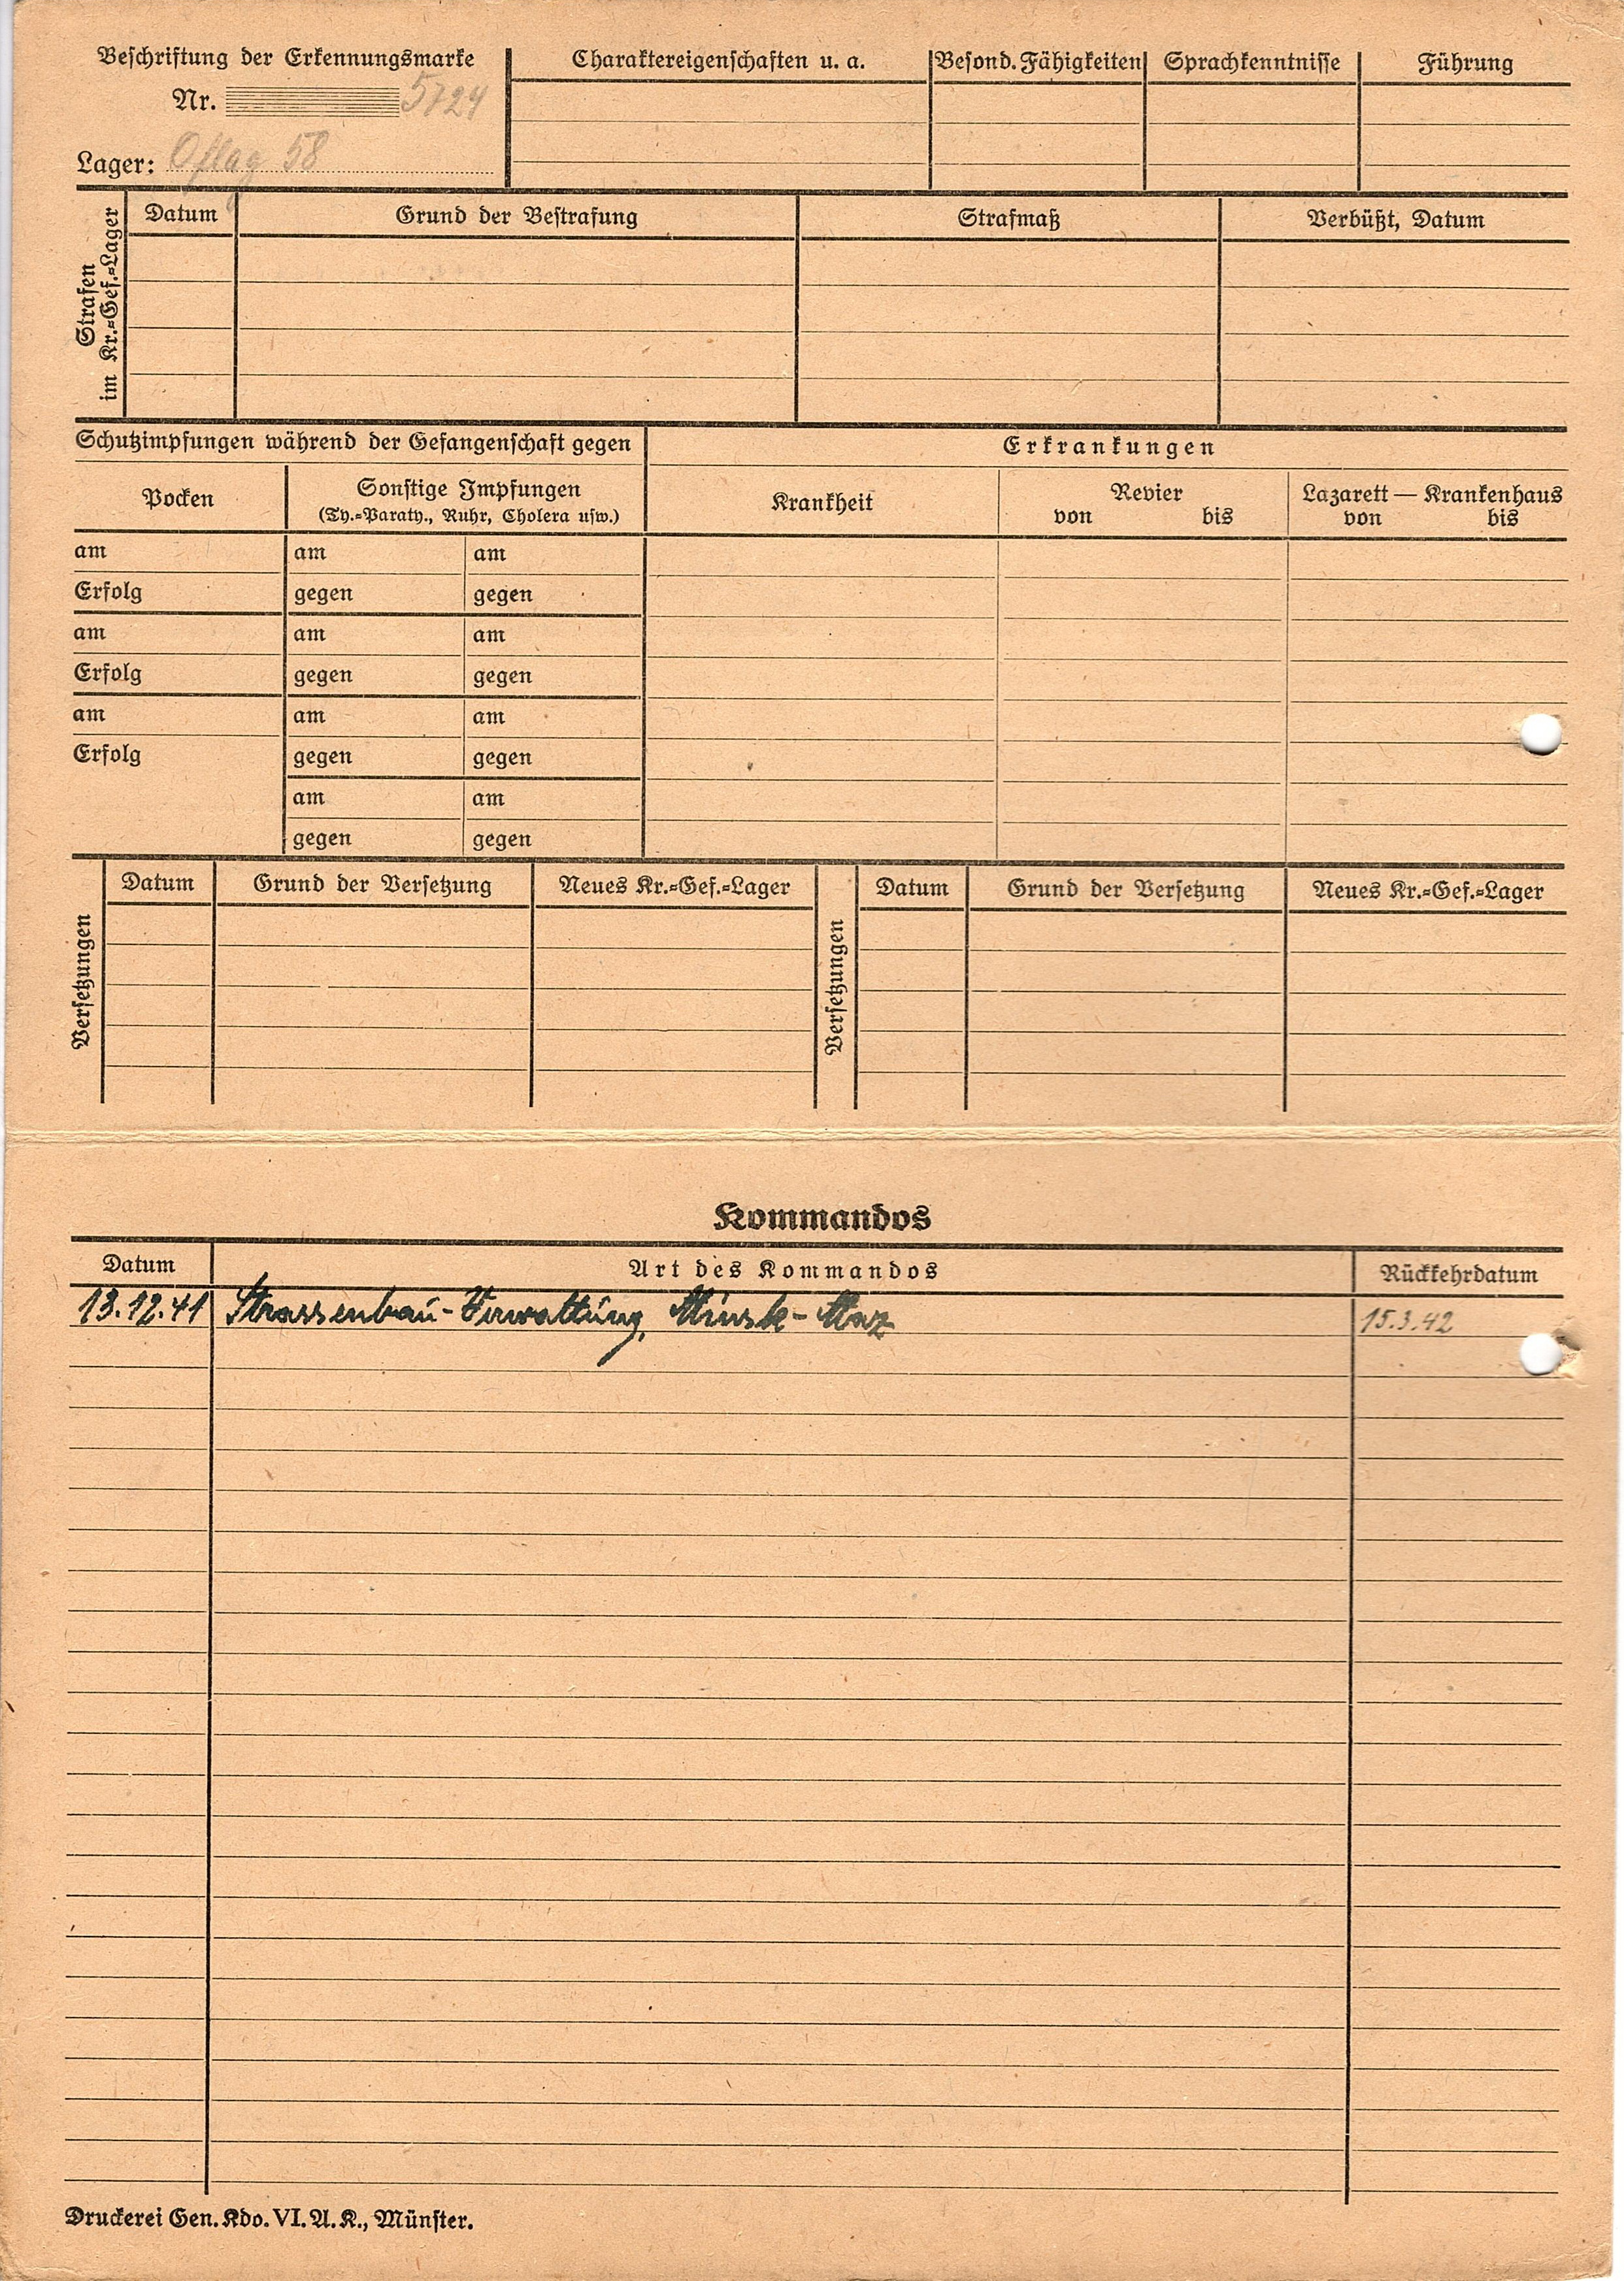 Beschriftung der Erkennungsmarke
Nr. 5724
Lager: Oflag 58
Charaktereigenschaften u. a.
Besond. Fähigkeiten
Sprachkenntnisse
Führung
Strafen
im Kr.=Gef.=Lager
Datum
Grund der Bestrafung
Strafmaß
Verbüßt, Datum
Schutzimpfungen während der Gefangenschaft gegen
Erkrankungen
Pocken
Sonstige Impfungen
(Ty.=Paraty., Ruhr, Cholera usw.)
Krankheit
Revier
von bis
Lazarett — Krankenhaus
von bis
am am am
Erfolg gegen gegen
am am am
Erfolg gegen gegen
am am am
Erfolg gegen gegen
am am
gegen gegen
Versetzungen
Datum Grund der Versetzung Neues Kr.=Gef.=Lager
Versetzungen
Datum Grund der Versetzung Neues Kr.=Gef.=Lager
Kommandos
Datum Art des Kommandos Rückkehrdatum
13.12.41 Strassenbau-Verwaltung, Minsk-Maz 15.3.42
Druckerei Gen. Kdo. VI. A. K., Münster.